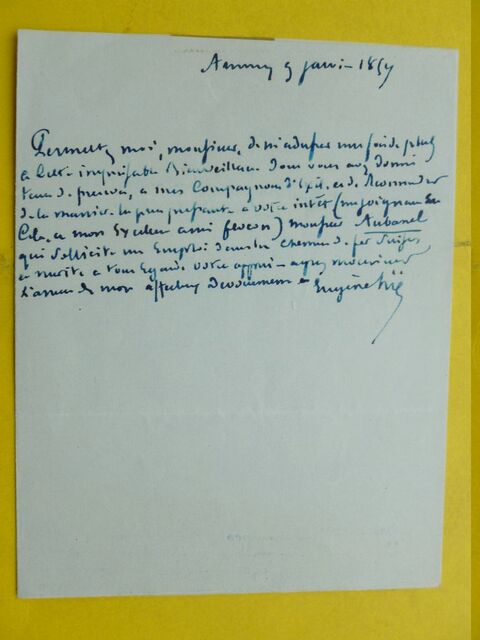 Annecy 9 janvier 1857
Permettez moi, monsieur, de m'adresser une fois de plus
à cette inépuisable Bienveillance dont vous avez donné
tant de preuves, à mes Compagnons d'Exil, et de Recommander
de la manière la plus pressante à votre intérêt (me joignant En
Cela, à mon Excellent ami) monsieur Aubanel
qui sollicite un Emploi dans les chemins de fer Suisses,
et mérite à tous Egards votre appui - agréez monsieur
l'assurance de mon affectueux Dévouement - Eugène Sue